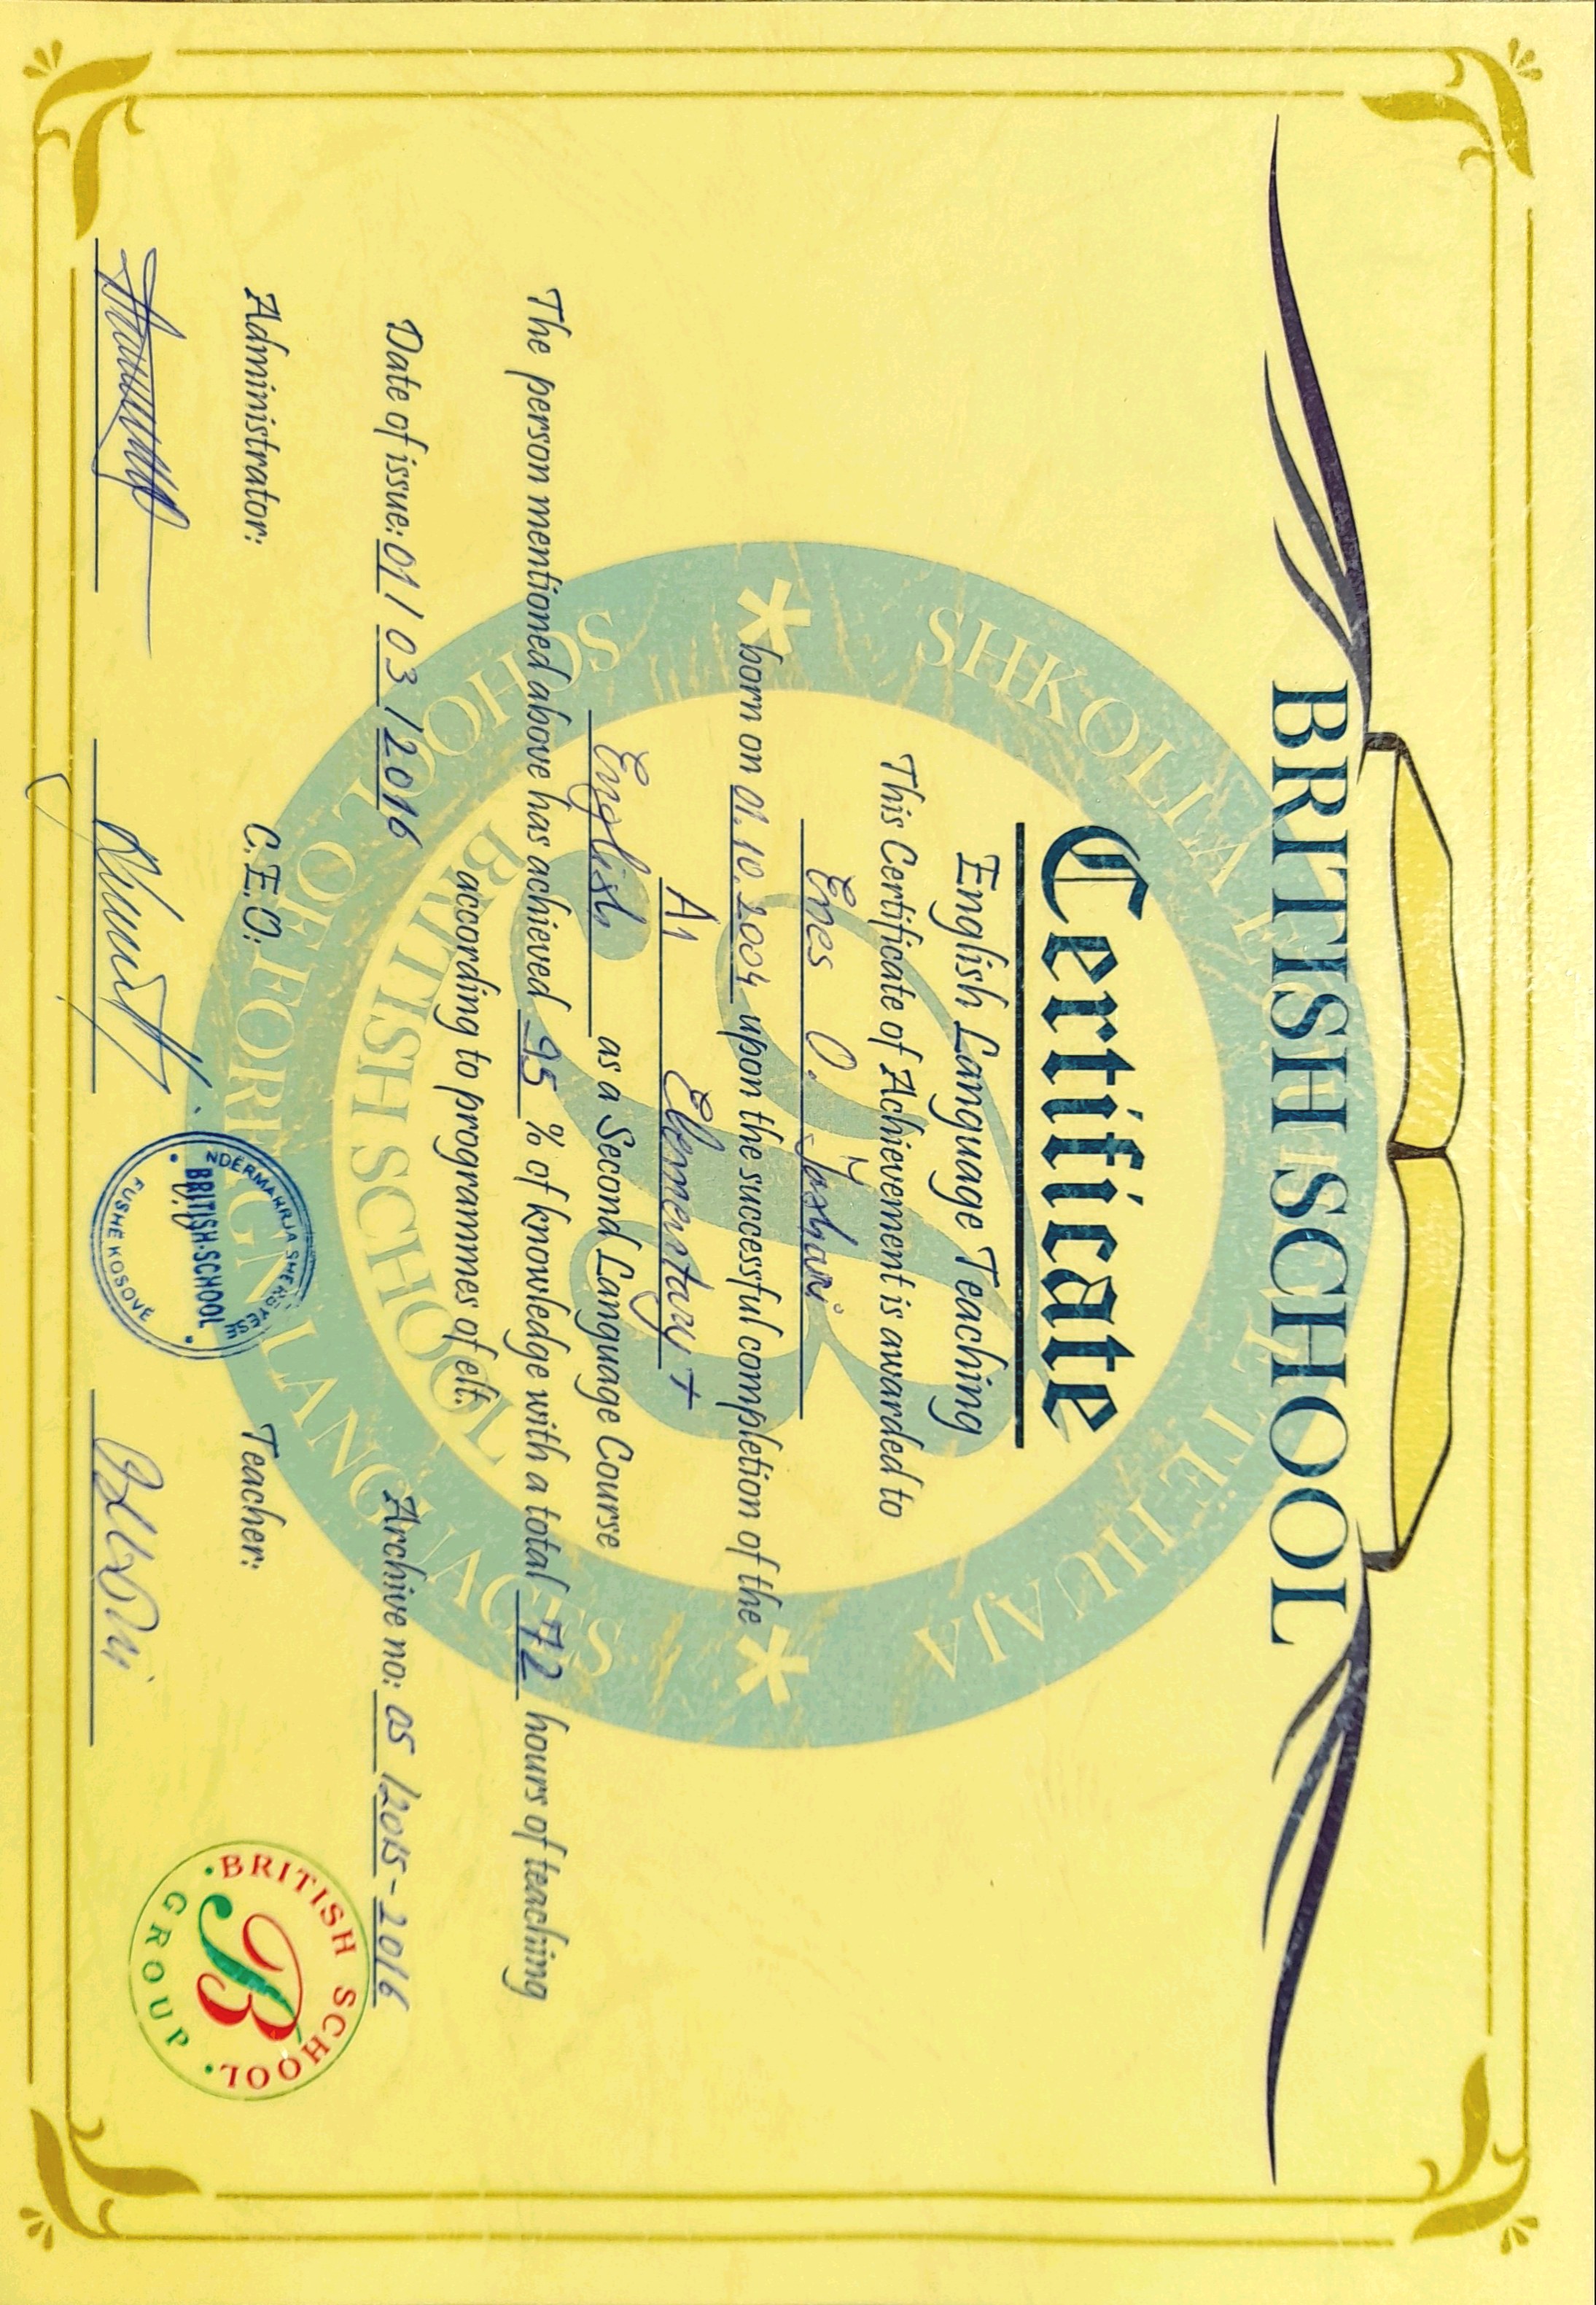 BRITISH SCHOOL
SHKOLLA E GJUHËVE TË HUAJA
Certificate
English Language Teaching
This Certificate of Achievement is awarded to
Enes O. Jashari
born on 01.10.2004 upon the successful completion of the
A1 Elementary +
English as a Second Language Course
The person mentioned above has achieved 95 % of knowledge with a total 72 hours of teaching
according to programmes of elt.
BRITISH SCHOOL
SCHOOL OF FOREIGN LANGUAGES
Date of issue: 01/ 03 /2016
Archive no: 05 /2015-2016
Administrator:
C.E.O:
NDËRMARRJA SHËRBYESE
BRITISH-SCHOOL
FUSHË KOSOVË
Teacher:
BRITISH SCHOOL
B
GROUP